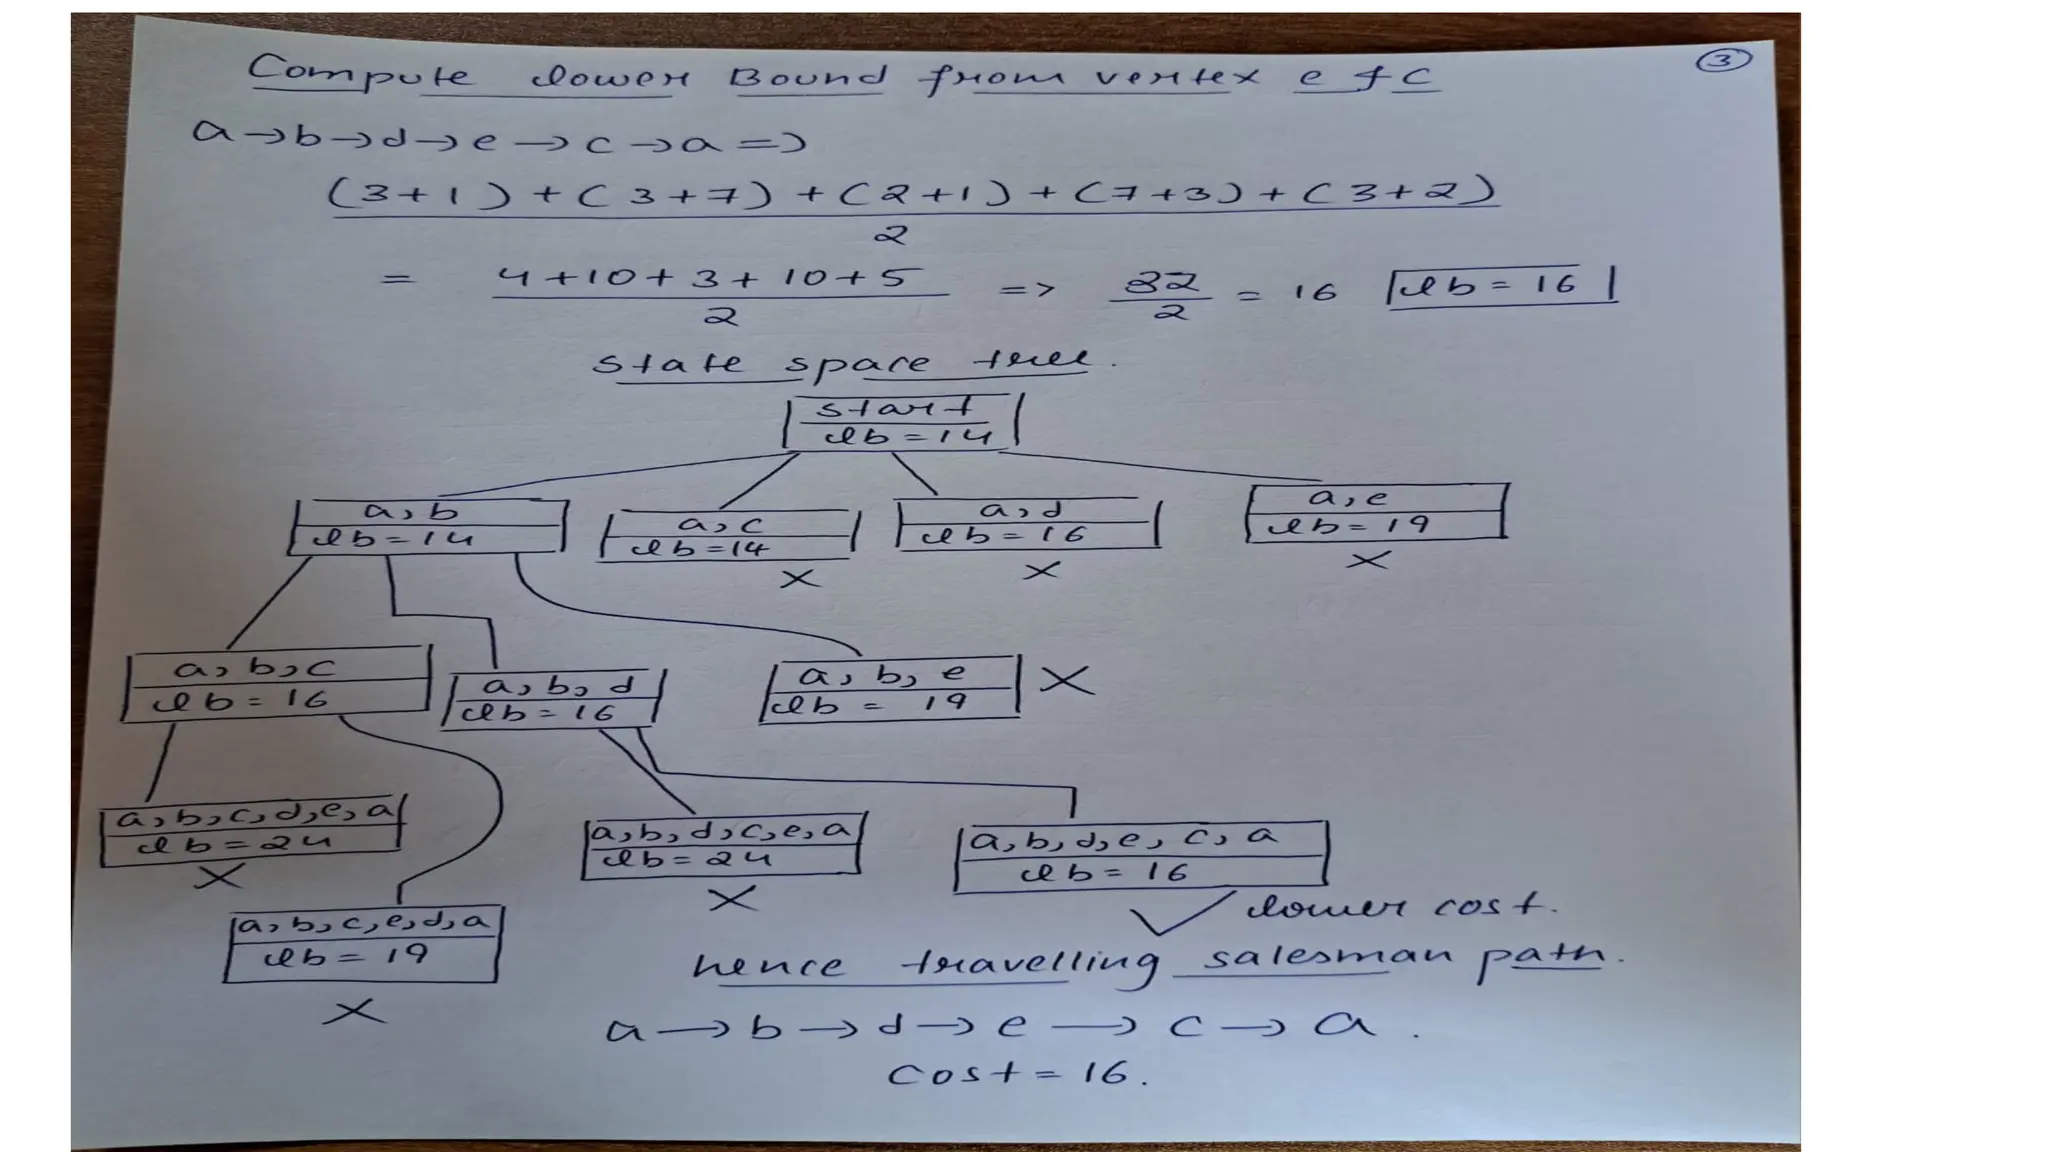 3
Compute lower Bound from vertex e & c
a→b→d→e→c→a=>
(3+1)+(3+7)+(2+1)+(7+3)+(3+2)
2
= 4+10+3+10+5 => 32 = 16 lb=16
2 2
State space tree.
start
lb=14
a,b a,c a,d a,e
lb=14 lb=14 lb=16 lb=19
X X X
a,b,c a,b,d a,b,e X
lb=16 lb=16 lb = 19
a,b,c,d,e,a a,b,d,c,e,a a,b,d,e,c,a
lb=24 lb=24 lb=16
X X ✓ lower cost.
a,b,c,e,d,a
lb=19
X
hence travelling salesman path.
a→b→d→e→c→a.
Cost=16.